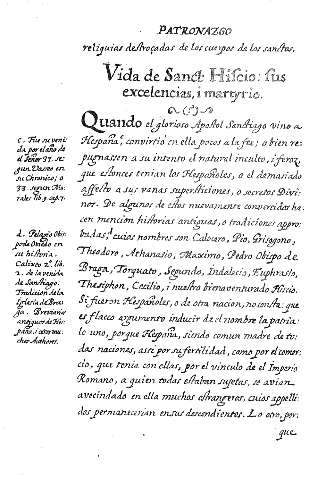 PATRONAZGO
reliquias destroçadas de los cuerpos de los sanctos.
Vida de Sanct: Hiscio: sus
excelencias, i martyrio.
Quando el glorioso Apostol Sanctiago vino a
Hespaña, convirtiò en ella pocos a la fee; o bien re
pugnassen a su intento el natural inculto, i feroz
que estonces tenian los Hespañoles, o el demasiado
affecto a sus vanas supersticiones, o secretos Divi-
nos. De algunos de estos nuevamente convertidos ha-
cen mencion historias antiguas, o tradiciones appro-
badas, cuios nombres son Calocero, Pio, Grisogono,
Theodoro, Athanasio, Maximo, Pedro Obispo de
Braga, Torquato, Segundo, Indalecio, Euphrasio,
Thesiphon, Cecilio, i nuestro bienaventurado Hiscio.
Si fueron Hespañoles, o de otra nacion, no consta: que
es flaco argumento inducir de el nombre la patria:
lo uno, porque Hespaña, siendo comun madre de to-
das naciones, assi por su fertilidad, como por el comer-
cio, que tenia con ellas, por el vinculo de el Imperio
Romano, a quien todas estaban sujetas, se avian
avecindado en ella muchos estrangeros, cuios appelli-
dos permanecerian en sus descendientes. Lo otro, por-
que
c. Fue su veni
da por el año de
el Señor 37. se-
gun Vaseo en
su Chronico; o
33. segun Mo-
rales lib. 9. cap. 7.
d. Pelagio Obis
po de Oviedo en
su historia.
Calixto 2. lib.
2. de la venida
de Sanctiago.
Tradicion de la
Iglesia de Bra-
ga. Breviarios
antiguos de Hes
paña: i con mu-
chos Authores.